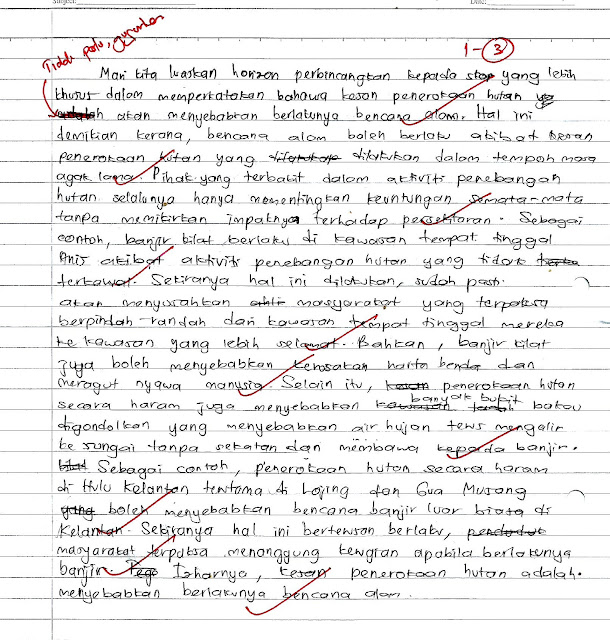 Tidak perlu, gugurkan
1 - 3
Mari kita luaskan horizon perbincangan kepada skop yang lebih
khusus dalam memperkatakan bahawa kesan penerokaan hutan
akan menyebabkan berlakunya bencana alam. Hal ini
demikian kerana, bencana alam boleh berlaku akibat
penerokaan hutan yang dilakukan dalam tempoh masa
agak lama. Pihak yang terbabit dalam aktiviti penebangan
hutan selalunya hanya mementingkan keuntungan semata-mata
tanpa memikirkan impaknya terhadap persekitaran. Sebagai
contoh, banjir kilat berlaku di kawasan tempat tinggal
Anis akibat aktiviti penebangan hutan yang tidak
terkawal. Sekiranya hal ini dilakukan, sudah pasti
akan menyusahkan masyarakat yang terpaksa
berpindah-randah dari kawasan tempat tinggal mereka
ke kawasan yang lebih selamat. Bahkan, banjir kilat
juga boleh menyebabkan kerosakan harta benda dan
meragut nyawa manusia. Selain itu, penerokaan hutan
secara haram juga menyebabkan banyak bukit bakau
digondolkan yang menyebabkan air hujan terus mengalir
ke sungai tanpa sekatan dan membawa kepada banjir.
Sebagai contoh, penerokaan hutan secara haram
di Hulu Kelantan terutama di Lojing dan Gua Musang
boleh menyebabkan bencana banjir luar biasa di
Kelantan. Sekiranya hal ini berterusan berlaku,
masyarakat terpaksa menanggung kerugian apabila berlakunya
banjir. penerokaan hutan adalah
menyebabkan berlakunya bencana alam.